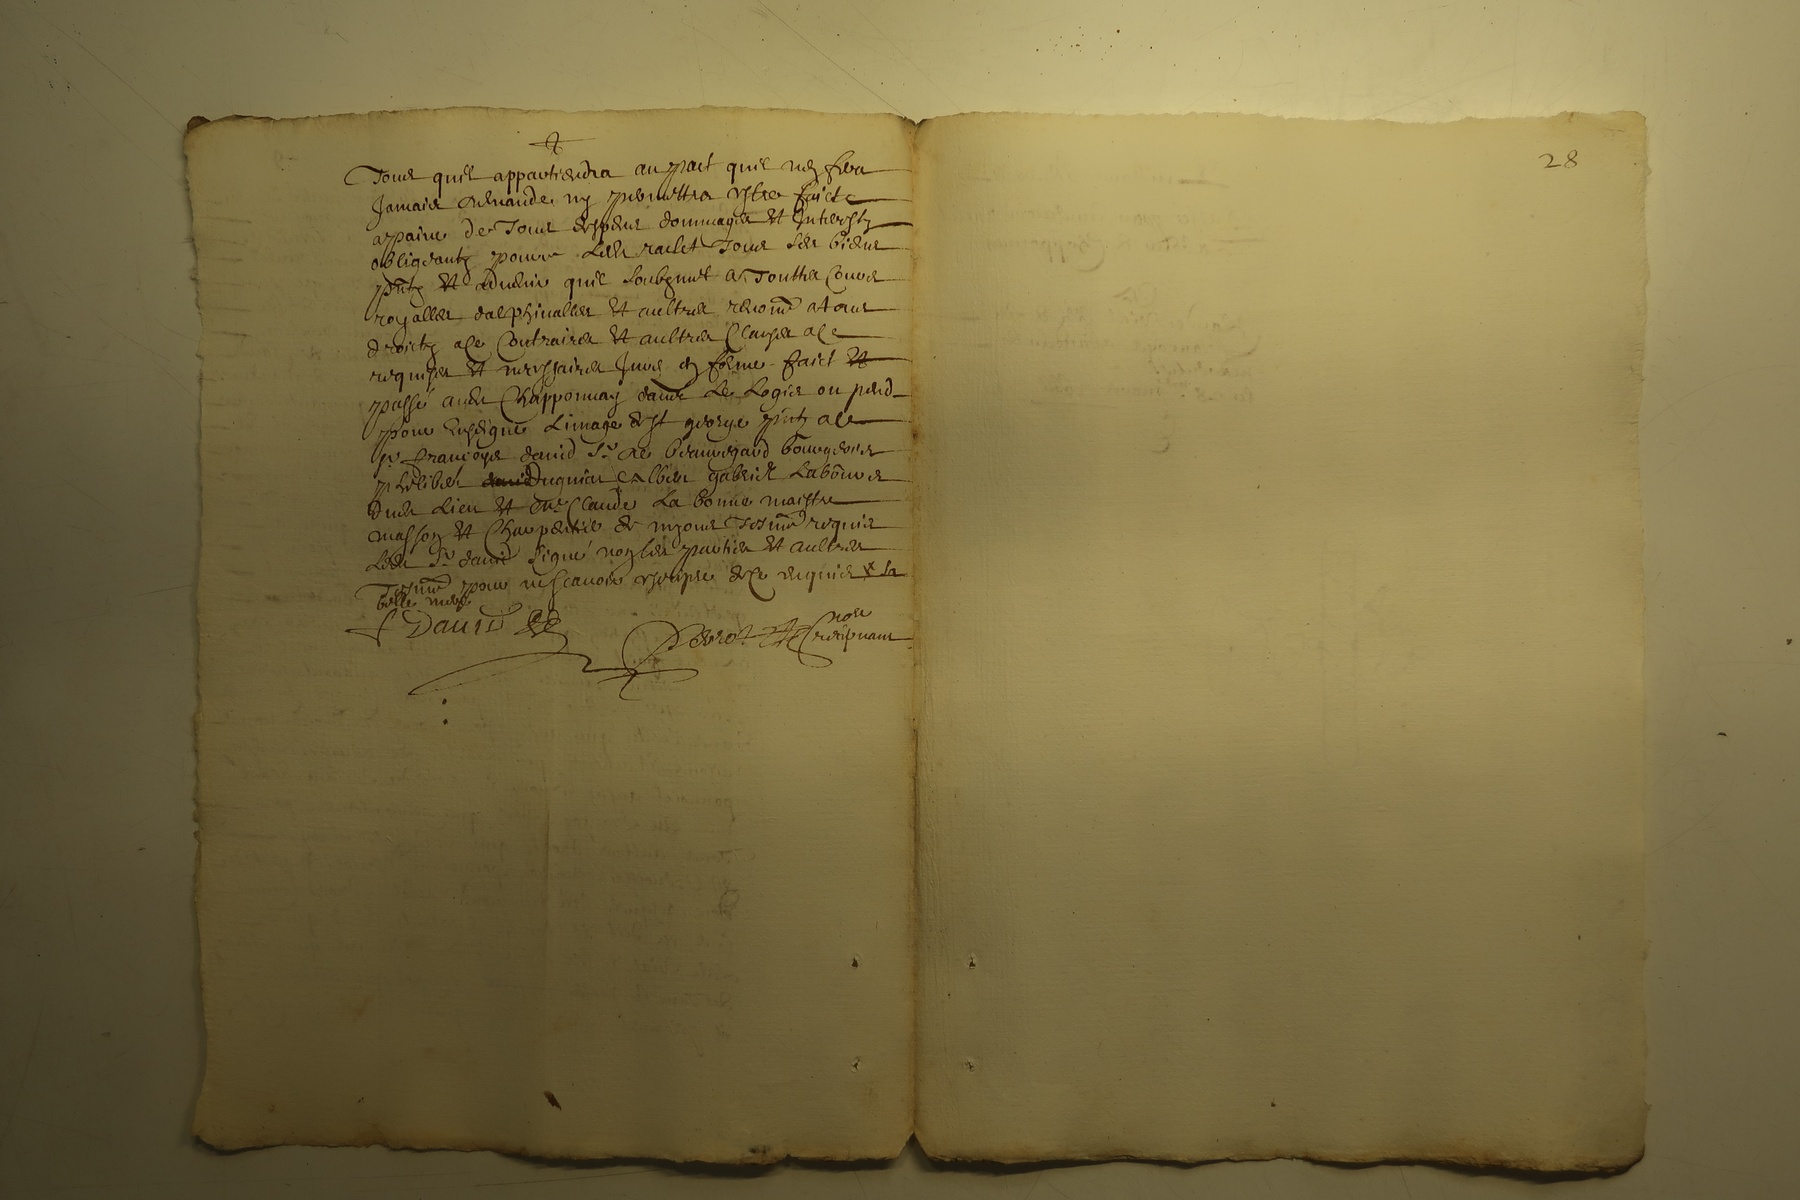 Tous quil appartiendra au pact quil nen sera
Jamais demande ny permettra estre faicte
apaine de Tous despens dommages et Interestz
obligeantz pour Led raclet Tous ses biens
pntz et advenir quil soubzmet a Touttes Cours
royalles dalphinalles et aultres renonce atous
droictz ace Contraires et aultres Clauses ace
requises et necessaires Jure en forme faict et
passé aud Chapponnay dans Le Logis ou pend
pour enseigne Limage de st george pntz ace
sr François david sr de beauregard bourgeois
gabriel Labonne
dud Lieu et Me Claude La bonne maistre
masson et Charpentier de Tesmoins requis
Led sr david signé non les parties et aultres
Tesmoins pour ne scavoir escripre de ce enquis + sa
belle mere
f David
Perrot nore recepvant
28